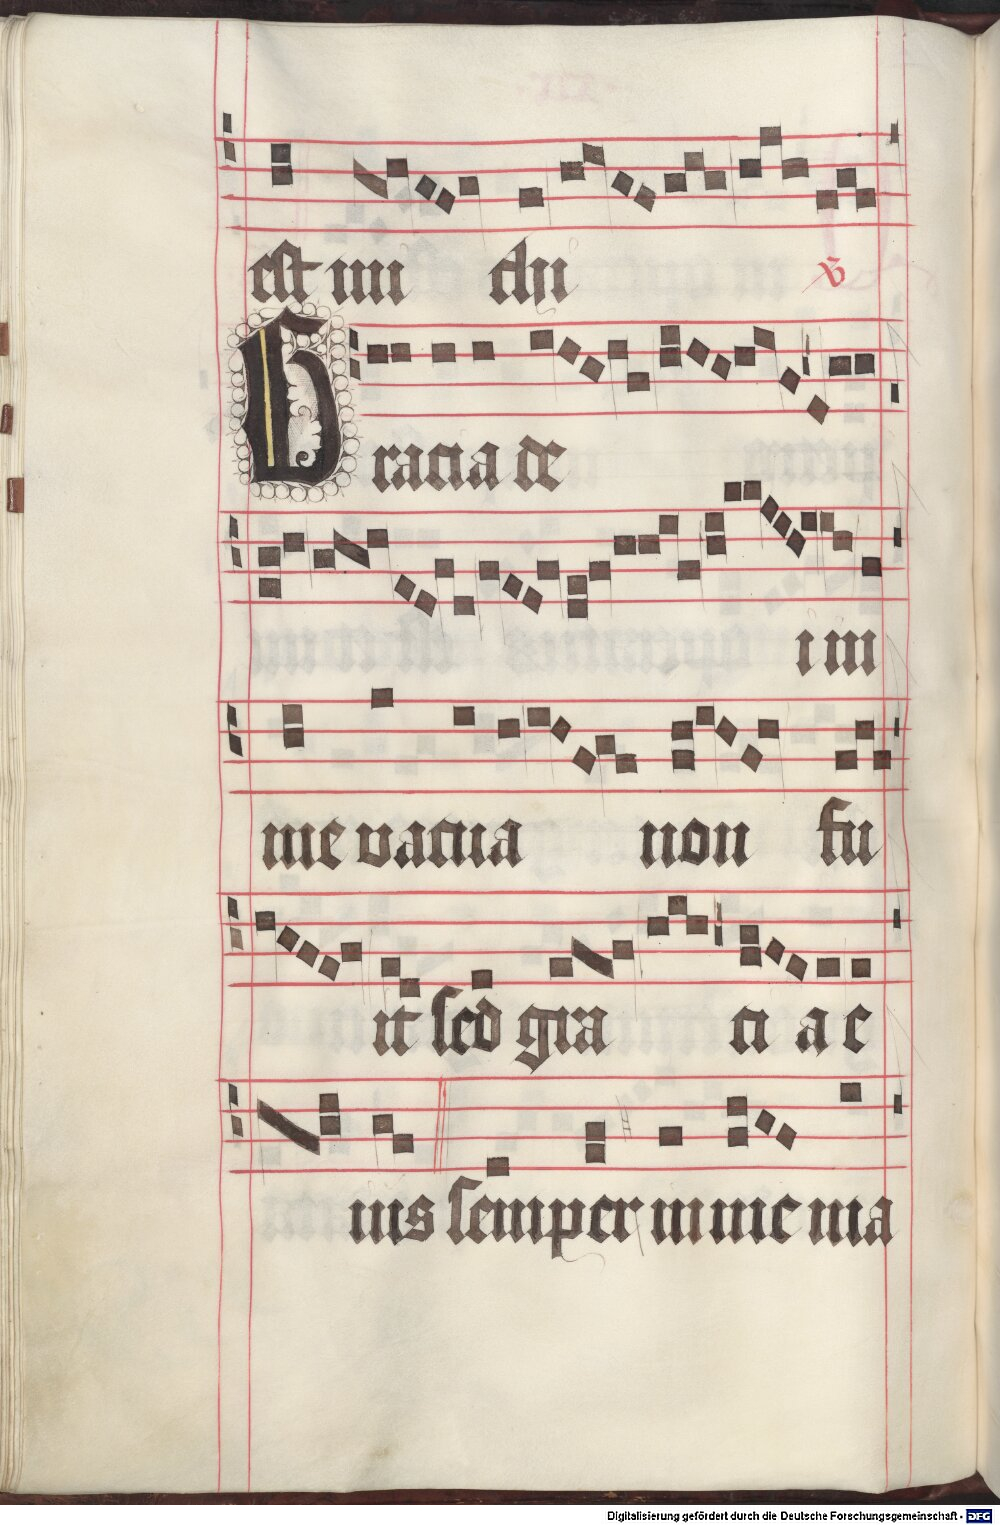 est mi chi
v̄
Gracia de
i in
me vacua non fu
it sed gra ci a e
ius semper in me ma
Digitalisierung gefördert durch die Deutsche Forschungsgemeinschaft - DFG